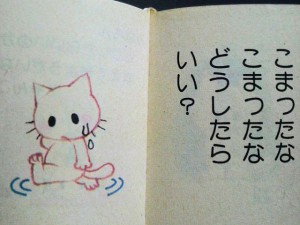 こまったな
こまったな
どうしたら
いい?